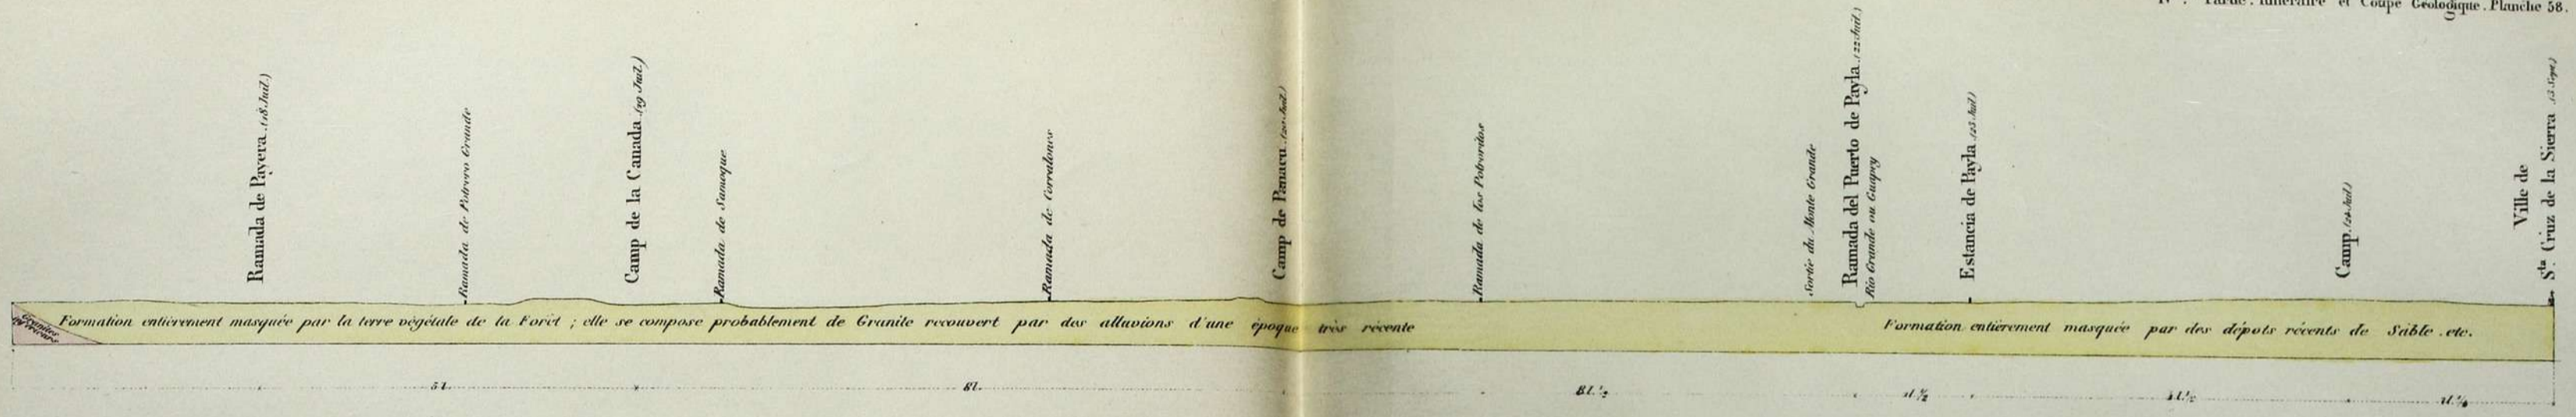 Partie. Itinéraire et Coupe Géologique. Planche 58.
Ramada de Payera (18 Juil.)
Ramada de Potrero Grande
Camp de la Canada (19 Juil.)
Ramada de Sumoque
Ramada de Corralones
Camp de Panacu (20 Juil.)
Ramada de los Potrorilos
Sortie du Monte Grande
Ramada del Puerto de Payla (22 Juil.)
Rio Grande ou Guapey
Estancia de Payla (23 Juil.)
Camp (24 Juil.)
Ville de
Sta. Cruz de la Sierra (3 Sept.)
Granites
Formation entièrement masquée par la terre végétale de la Forêt ; elle se compose probablement de Granite recouvert par des alluvions d'une époque très récente
Formation entièrement masquée par des dépots récents de Sable . etc.
5 l.
8 l.
8 l. ½